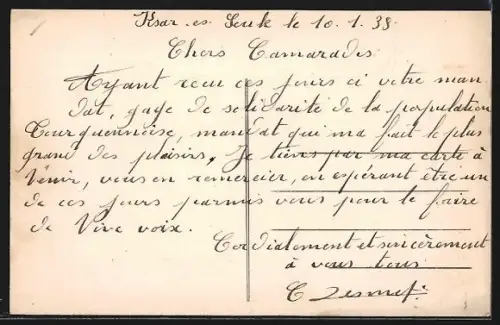 Ksar es Souk le 10.1.38
Chers Camarades
Ayant reçu ces jours ci votre man
dat, gage de solidarité de la porpulation
Tourquennoise, mandat qui ma fait le plus
grand des plaisirs, Je tiens par ma carte à
Venir, vous en remercier, en espérant être un
de ces jours parmis vous pour le faire
de Vive voix.
Cordialement et sincèrement
à vous tous